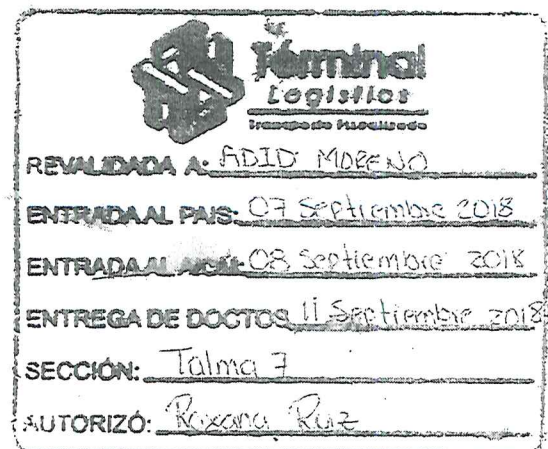 Terminal
Logistics
Transporte Fiscalizado
REVALIDADA A: ADID MORENO
ENTRADA AL PAIS: 07 Septiembre 2018
ENTRADA AL AICM: 08 Septiembre 2018
ENTREGA DE DOCTOS 11 Septiembre 2018
SECCIÓN: Talma 7
AUTORIZÓ: Roxana Ruiz